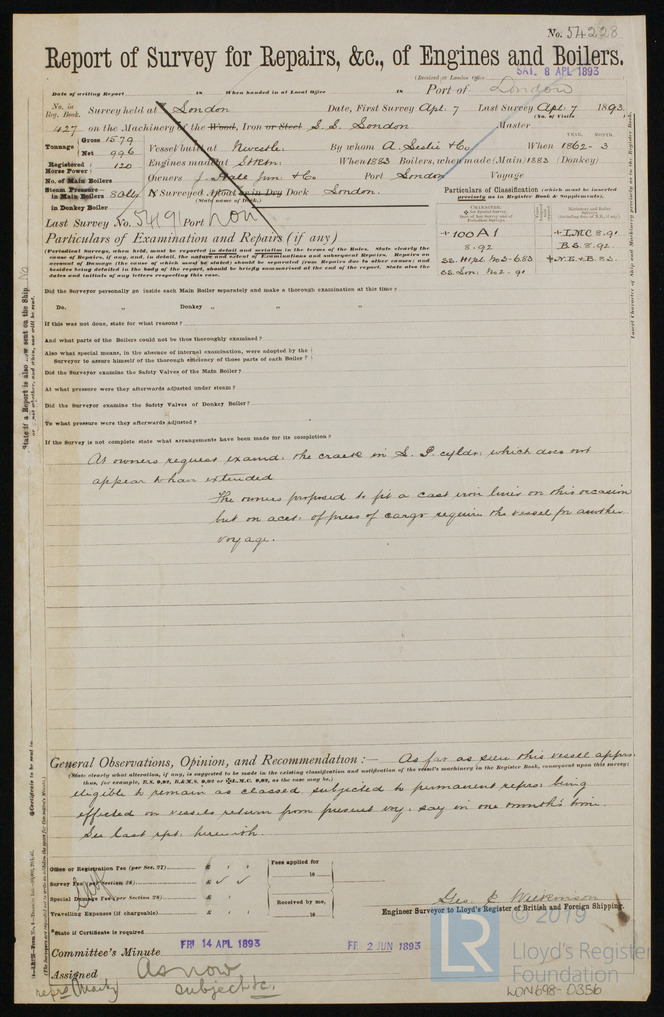 No. 54228
Report of Survey for Repairs, &c., of Engines and Boilers.
(Received at London Office SAT. 8 APL 1893
Date of writing Report 18 When handed in at Local Office 18 Port of London
No. in Reg. Book. Survey held at London Date, First Survey Apl. 7 Last Survey Apl. 7 1893.
(No. of Visits )
427 on the Machinery of the Wood, Iron or Steel S.S. London Master
Tonnage Gross 1579 Net 996 Vessel built at Newcstle. By whom A. Leslie & Co When 1862-3
YEAR. MONTH.
Registered Horse Power 120 Engines made at When 1883 Boilers, when made (Main) 1883 (Donkey)
No. of Main Boilers Owners J. Hall Jun. & Co Port London Voyage
Steam Pressure in Main Boilers 80 lbs If Surveyed Afloat or in Dry Dock London.
(State name of Dock.)
in Donkey Boiler
Last Survey No. 5491 Port Lon
Particulars of Classification (which must be inserted precisely as in Register Book & Supplements).
+100A1 +LMC 8.91
8.92 BS. 8.92
+N.E.+B.83.
Particulars of Examination and Repairs (if any)
(Periodical Surveys, when held, must be reported in detail and seriatim in the terms of the Rules. State clearly the cause of Repairs, if any, and, in detail, the nature and extent of Examinations and subsequent Repairs. Repairs on account of Damage (the cause of which must be stated) should be separated from Repairs due to other causes; and besides being detailed in the body of the report, should be briefly summarised at the end of the report. State also the dates and initials of any letters respecting this case.
Did the Surveyor personally go inside each Main Boiler separately and make a thorough examination at this time?
Do. " Donkey " "
If this was not done, state for what reasons?
And what parts of the Boilers could not be thus thoroughly examined?
Also what special means, in the absence of internal examination, were adopted by the Surveyor to assure himself of the thorough efficiency of those parts of each Boiler?
Did the Surveyor examine the Safety Valves of the Main Boiler?
At what pressure were they afterwards adjusted under steam?
Did the Surveyor examine the Safety Valves of Donkey Boiler?
To what pressure were they afterwards adjusted?
If the Survey is not complete state what arrangements have been made for its completion?
At owners request examd. the crack in L. P. cyldr. which does not
appear to have extended
The owners proposed to fit a cast iron liner on this occasion
but on acct. of press of cargo require the vessel for another
voyage.
General Observations, Opinion, and Recommendation:— As far as seen this vessel apprs.
(State clearly what alteration, if any, is suggested to be made in the existing classification and notification of the vessel's machinery in the Register Book, consequent upon this survey; thus, for example, B.S. 9,92, B.&M.S. 9,92 or L.M.C. 9,92, as the case may be.)
eligible to remain as classed subjected to permanent reprs. being
effected on vessels return from present voy. say in one month's time.
See last rpt. herewith.
Office or Registration Fee (per Sec. 27) £ : :
Survey Fee (per Section 28) £ : :
Special Damage Fee (per Section 28) £ : :
Travelling Expenses (if chargeable) £ : :
Fees applied for
18
Received by me,
18
*State if Certificate is required
Geo. R. Wilkinson
Engineer Surveyor to Lloyd's Register of British and Foreign Shipping.
Committee's Minute FRI 14 APL 1893 FRI 2 JUN 1893
Assigned As now
subject &c.
State if a Report is also now sent on the Ship. No
*Certificate to be sent to
© 2019
LR
Lloyd's Register
Foundation
LON698-0356